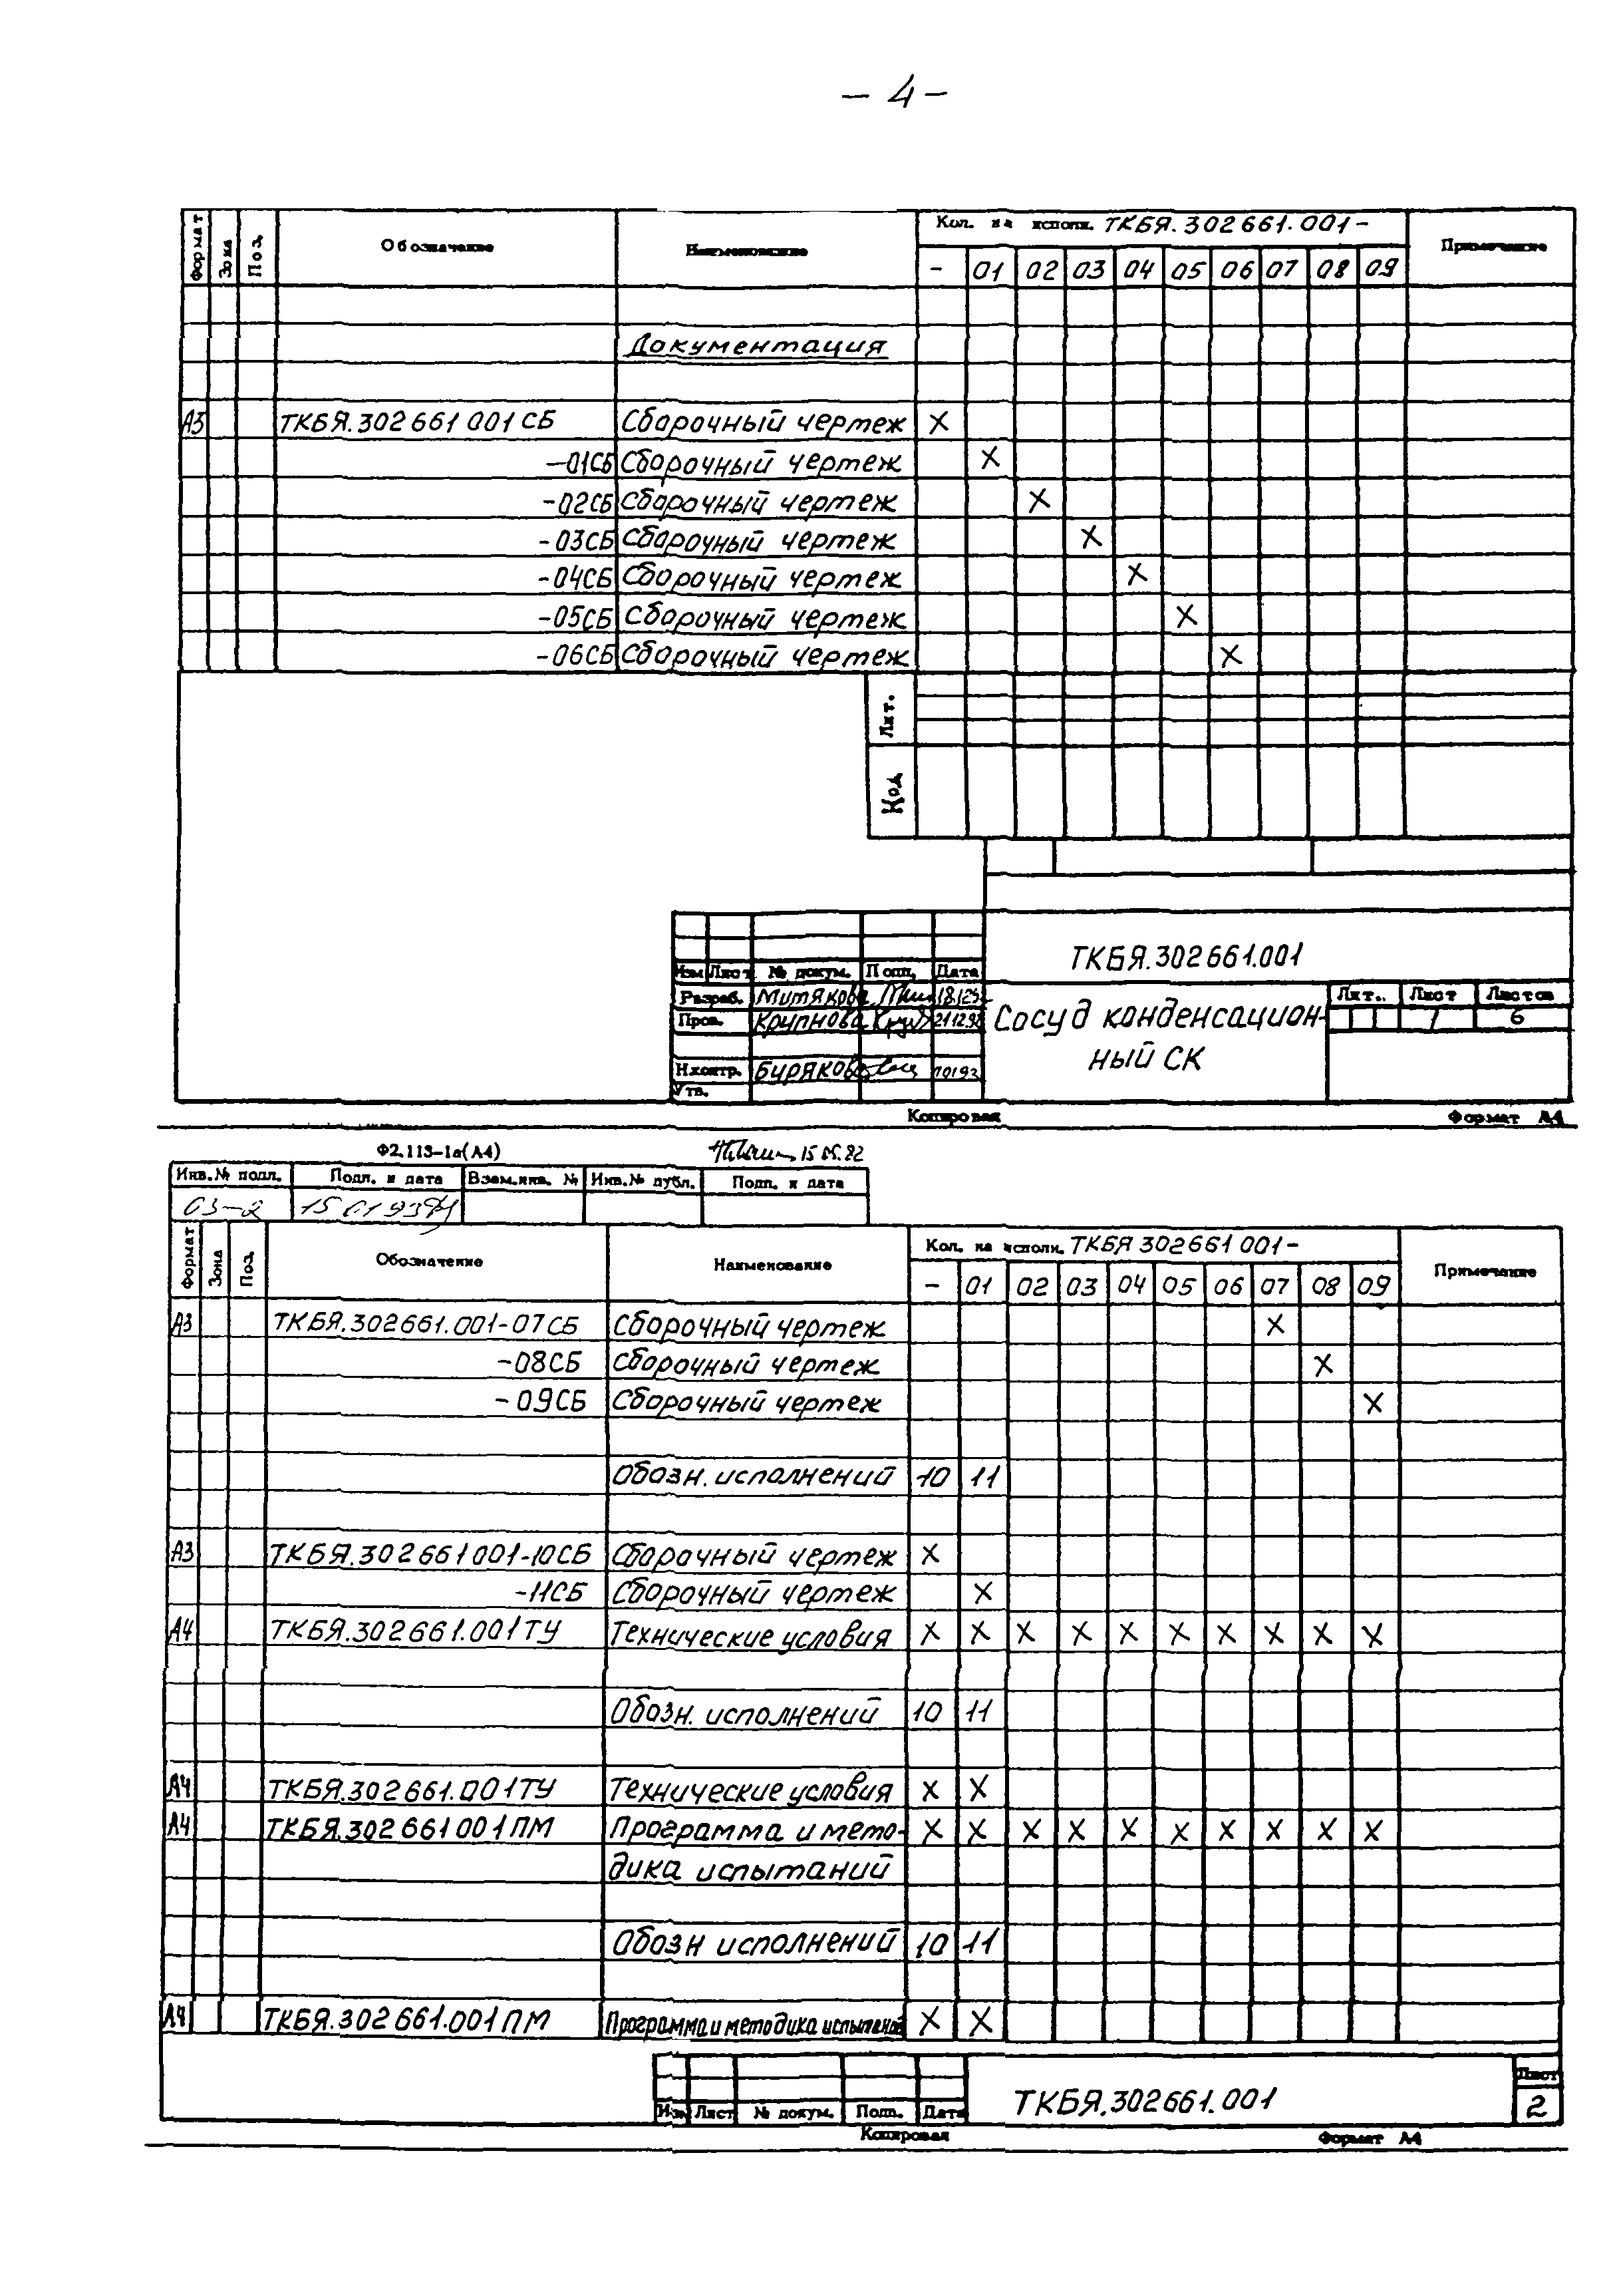 - 4 -
Формат Зона Поз. Обозначение Наименование Кол. на исполн. ТКБЯ.302661.001- Примечание
- 01 02 03 04 05 06 07 08 09
Документация
А3 ТКБЯ.302661 001 СБ Сборочный чертеж X
-01СБ Сборочный чертеж X
-02СБ Сборочный чертеж X
-03СБ Сборочный чертеж X
-04СБ Сборочный чертеж X
-05СБ Сборочный чертеж X
-06СБ Сборочный чертеж X
Лит.
Код
ТКБЯ.302661.001
Изм Лист № докум. Подп. Дата
Разраб. Митякова
Пров. Крупнова 211292
Н.контр. Бирякова 10193
Утв.
Сосуд конденсацион-
ный СК
Лит. Лист Листов
1 6
Копировал Формат А4
Ф2.113-1а(А4) 15.05.92
Инв.№ подл. Подп. и дата Взам.инв. № Инв.№ дубл. Подп. и дата
03-2 150193
Формат Зона Поз. Обозначение Наименование Кол. на исполн. ТКБЯ 302661 001- Примечание
- 01 02 03 04 05 06 07 08 09
А3 ТКБЯ.302661.001-07СБ Сборочный чертеж X
-08СБ Сборочный чертеж X
-09СБ Сборочный чертеж X
Обозн. исполнений 10 11
А3 ТКБЯ.302661001-10СБ Сборочный чертеж X
-11СБ Сборочный чертеж X
А4 ТКБЯ.302661.001ТУ Технические условия X X X X X X X X X X
Обозн. исполнений 10 11
А4 ТКБЯ.302661.001ТУ Технические условия X X
А4 ТКБЯ.302661 001 ПМ Программа и мето- X X X X X X X X X X
дика испытаний
Обозн исполнений 10 11
А4 ТКБЯ.302661.001 ПМ Программа и методика испытаний X X
Изм Лист № докум. Подп. Дата
ТКБЯ.302661.001
Лист
2
Копировал Формат А4